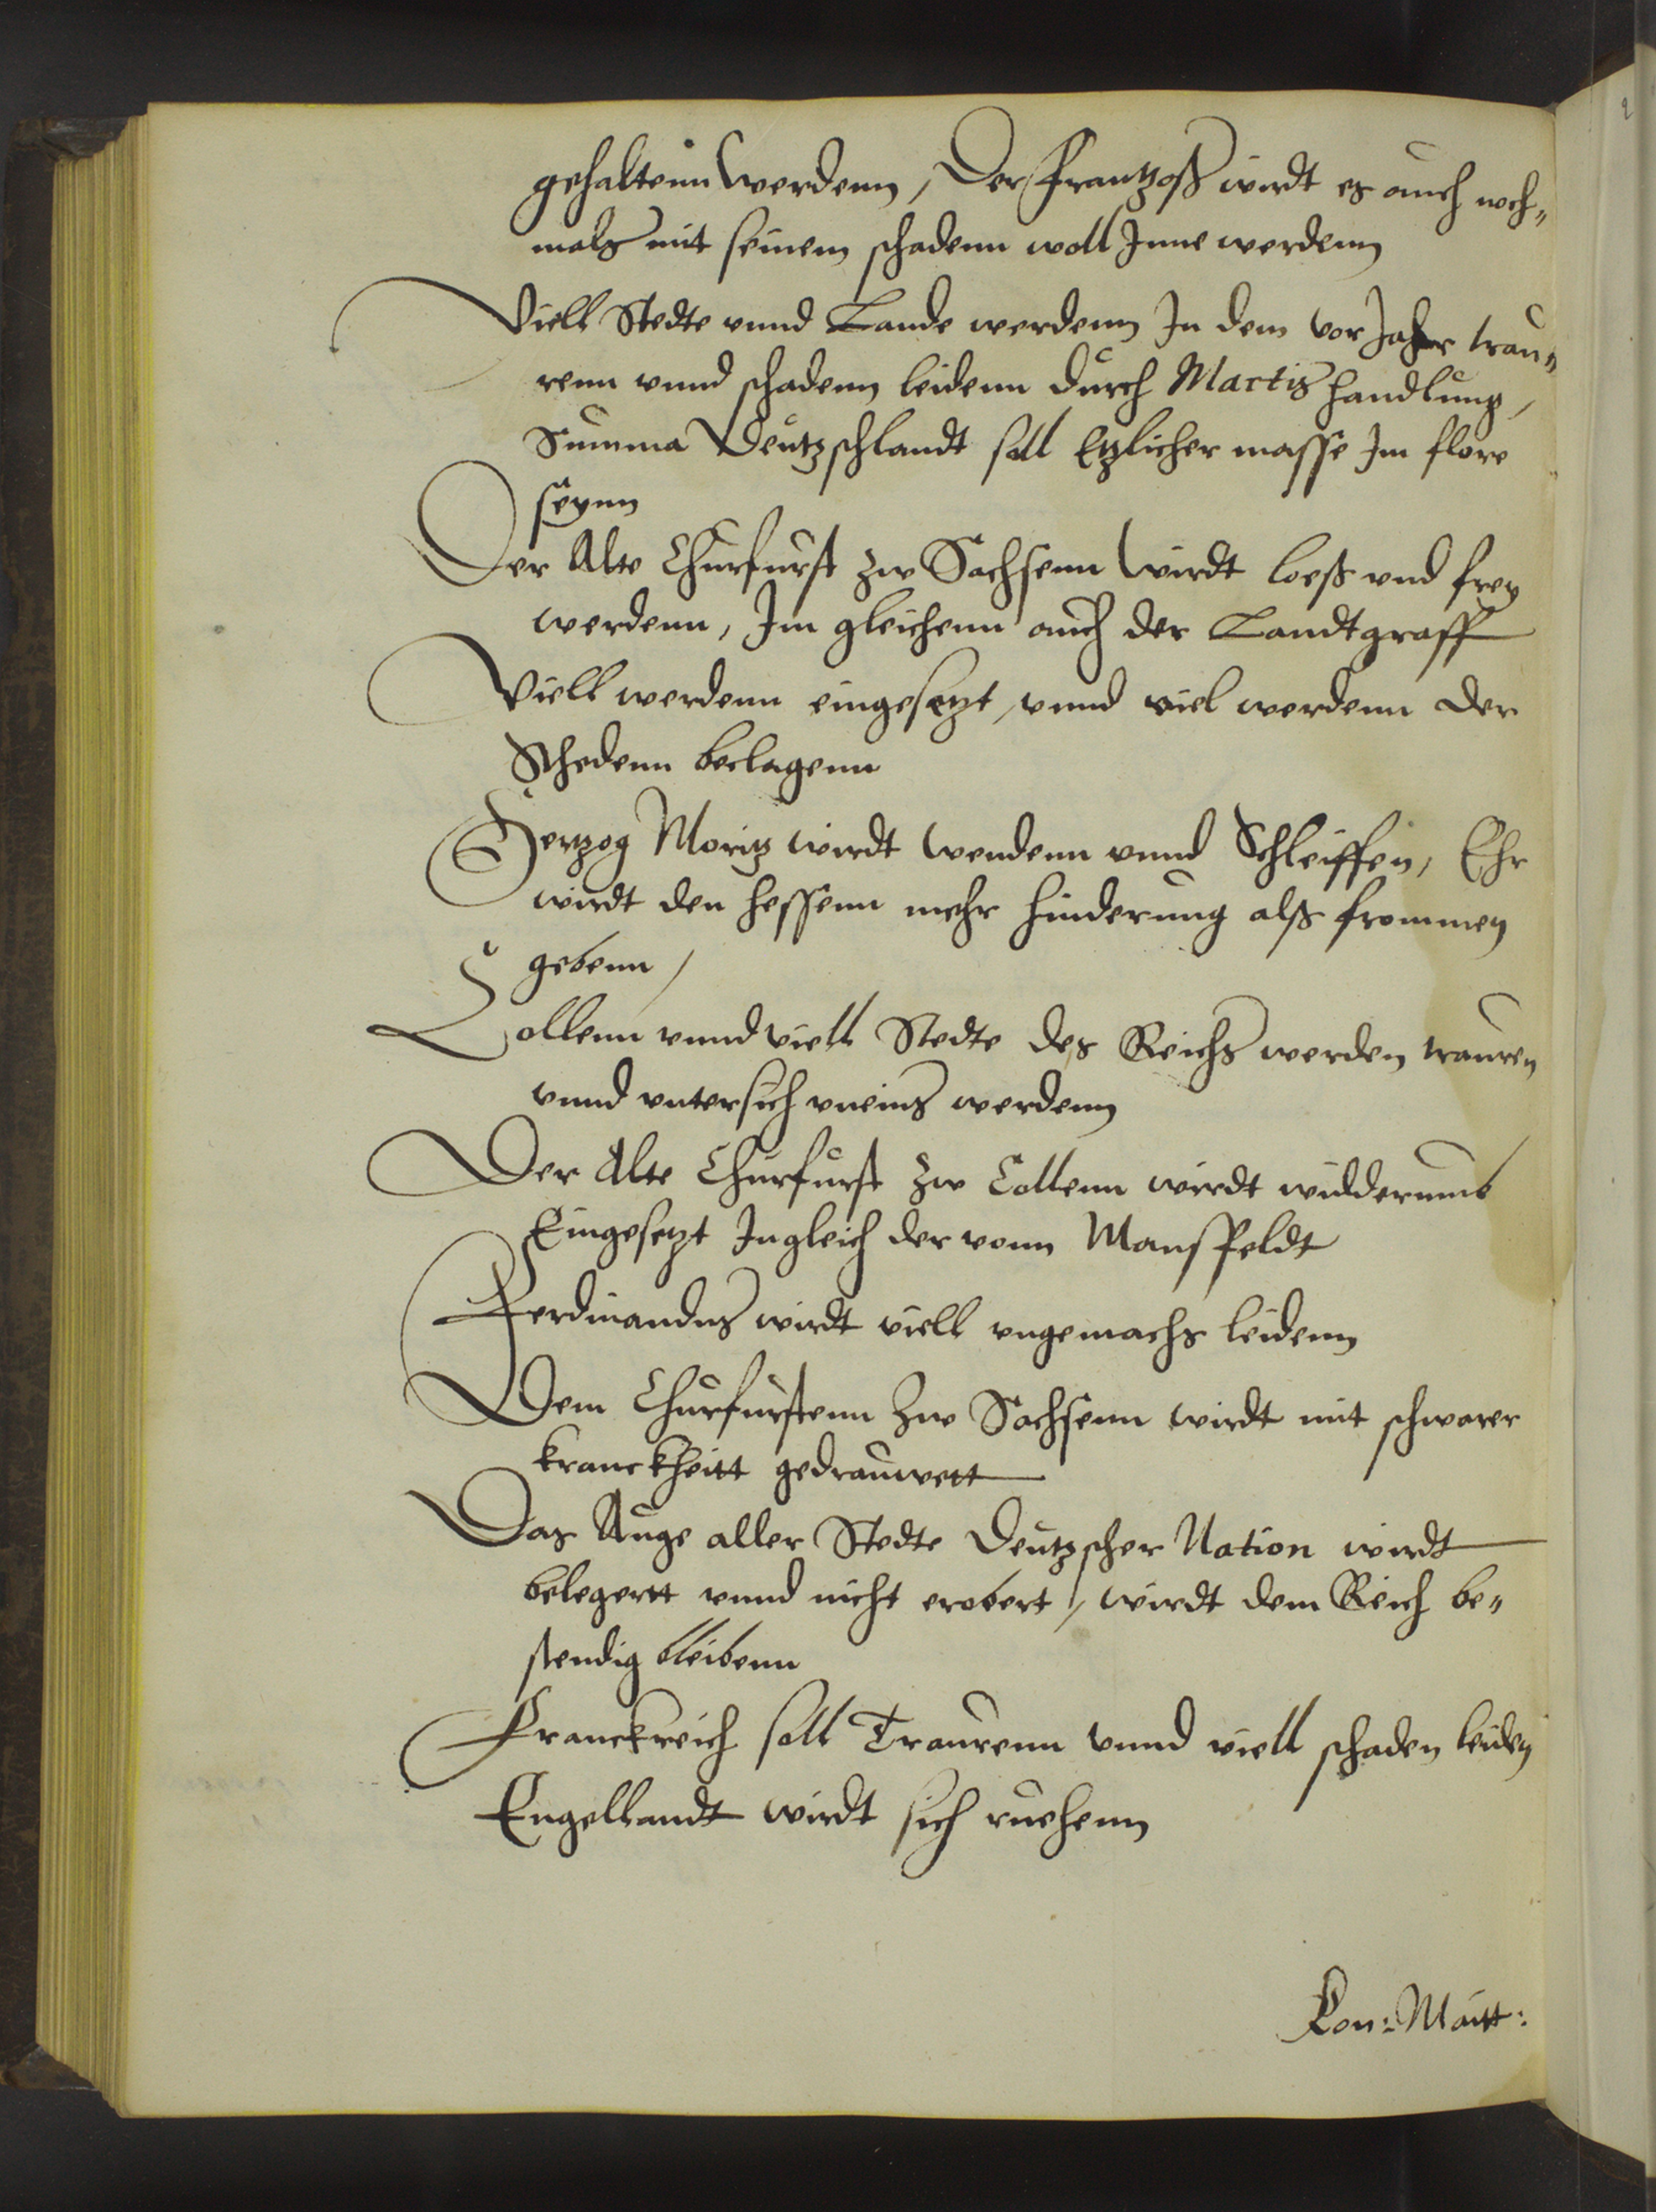 gehaltenn werdenn, Der Frantzoß wirdt es auch noch„
mals mit seinem schadenn woll Jnne werdenn
Viell Stedte vnnd Lande werdenn Jn dem vor Jahr trau„
renn vnnd schadenn leidenn durch Martis handlung,
Summa Deutzschlandt soll Etzlicher masse Jm flore
seynn
Der Alte Churfurst zw Sachsenn wirdt loeß vnd frey
werdenn, Jm gleichenn auch der Landtgraff
Viell werdenn eingesetzt, vnnd viel werdenn der
Schedenn beclagenn
Hertzog Moritz wirdt wendenn vnnd Schleiffen, Ehr
wirdt den hessenn mehr hinderung alß frommen
gebenn,
Collenn vnnd viell Stedte des Reichs werden trauren
vnnd vntersich vneins werdenn
Der Alte Churfurst zw Collenn wirdt widderumb
Eingesetzt Jngleich der vonn Mansfeldt
Ferdinandus wirdt viell vngemachs leidenn
Dem Churfurstenn zw Sachsenn wirdt mit schwarer
kranckheitt gedrauwett
Das Auge aller Stedte Deutzscher Nation wirdt
belegertt vnnd nicht erobert, wirdt dem Reich be„
stendig bleibenn
Franckreich soll Traurenn vnnd viell schaden leiden
Engellandt wirdt sich ruehenn
Kon: Maitt: